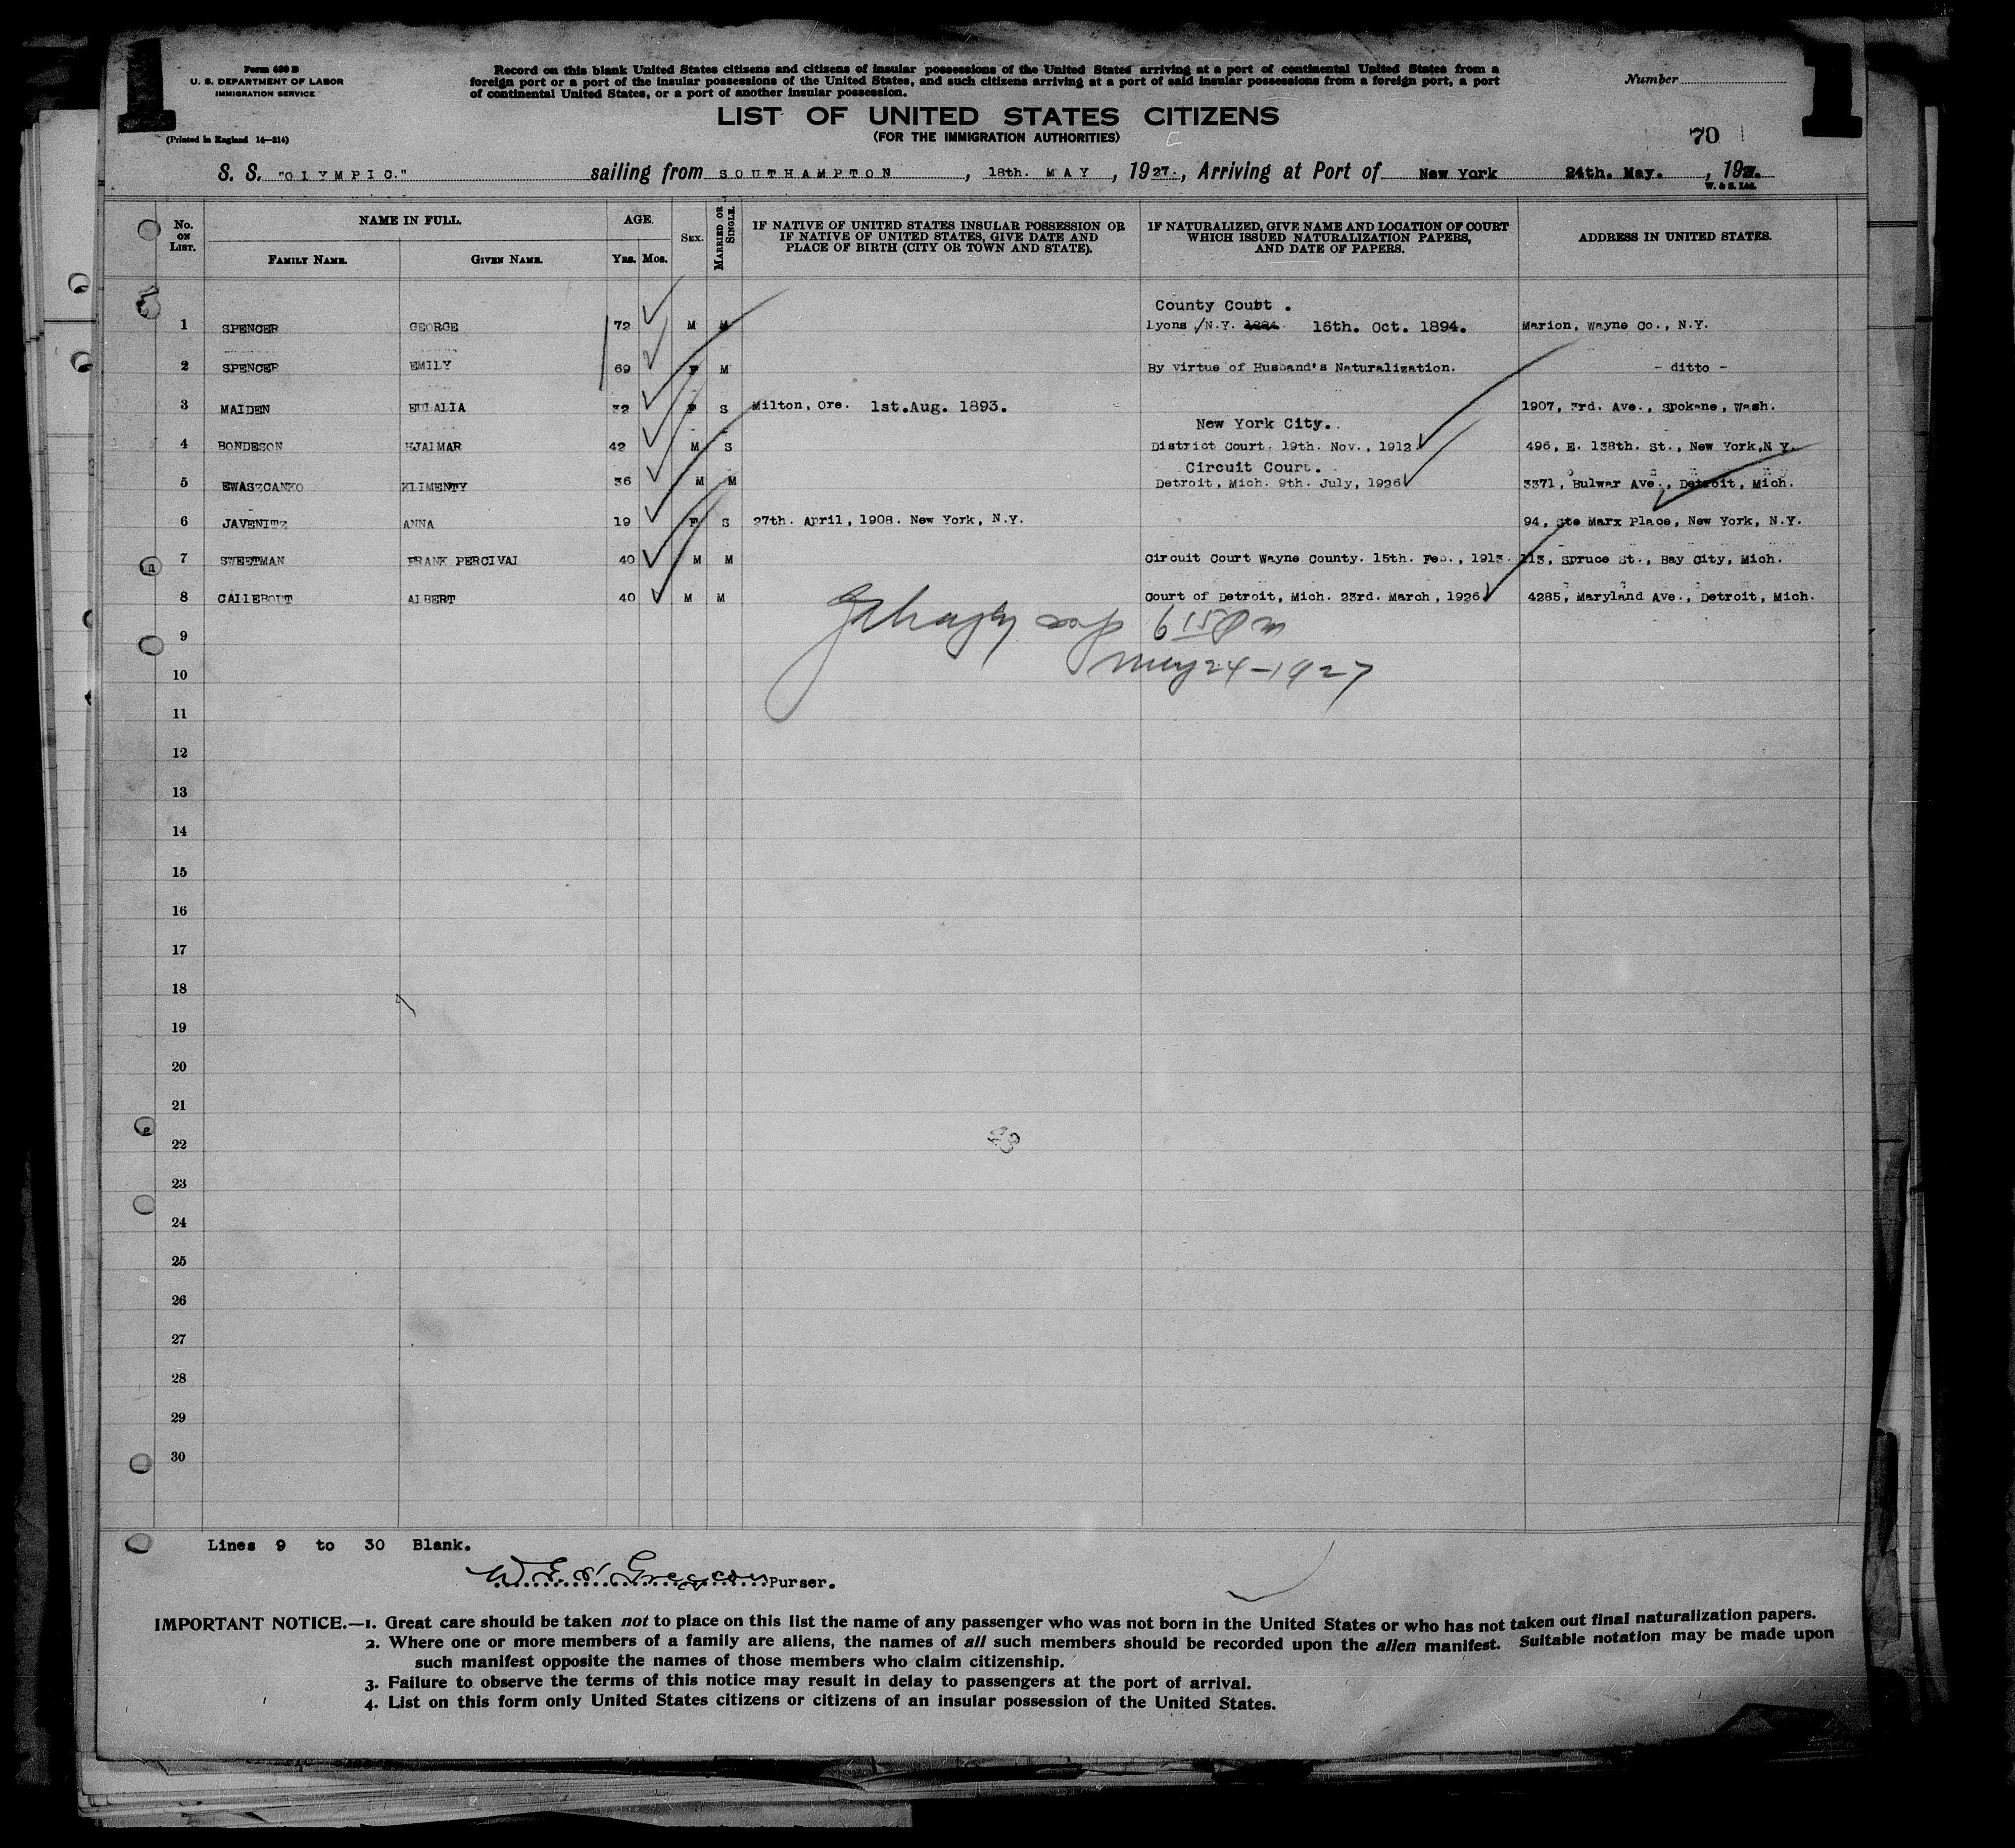 1
1
Form 630 B
U. S. DEPARTMENT OF LABOR
IMMIGRATION SERVICE
(Printed in England 14—214)
Record on this blank United States citizens and citizens of insular possessions of the United States arriving at a port of continental United States from a
foreign port or a port of the insular possessions of the United States, and such citizens arriving at a port of said insular possessions from a foreign port, a port
of continental United States, or a port of another insular possession.
Number
LIST OF UNITED STATES CITIZENS
(FOR THE IMMIGRATION AUTHORITIES)
70
S. S. "OLYMPIC." sailing from SOUTHAMPTON, 18th. MAY, 1927., Arriving at Port of New York 24th. May., 1927.
W. & S. Ltd.
No. ON LIST. NAME IN FULL. AGE. SEX. MARRIED OR SINGLE. IF NATIVE OF UNITED STATES INSULAR POSSESSION OR IF NATIVE OF UNITED STATES, GIVE DATE AND PLACE OF BIRTH (CITY OR TOWN AND STATE). IF NATURALIZED, GIVE NAME AND LOCATION OF COURT WHICH ISSUED NATURALIZATION PAPERS, AND DATE OF PAPERS. ADDRESS IN UNITED STATES.
FAMILY NAME. GIVEN NAME. YRS. MOS.
County Court .
1 SPENCER GEORGE 72 M M Lyons /N.Y. 16th. Oct. 1894. Marion, Wayne Co., N.Y.
2 SPENCER EMILY 69 F M By virtue of Husband's Naturalization. - ditto -
3 MAIDEN EULALIA 32 F S Milton, Ore. 1st.Aug. 1893. 1907, 3rd. Ave., Spokane, Wash.
New York City.
4 BONDESON HJALMAR 42 M S District Court, 19th. Nov., 1912 496, E. 138th. St., New York,N Y.
Circuit Court.
5 EWASZCANKO KLIMENTY 36 M M Detroit, Mich. 9th. July, 1926 3371, Bulwar Ave., Detroit, Mich.
6 JAVENITZ ANNA 19 F S 27th. April, 1908. New York, N.Y. 94, Ste Marx Place, New York, N.Y.
7 SWEETMAN FRANK PERCIVAL 40 M M Circuit Court Wayne County. 15th. Feb., 1913. 113, Spruce St., Bay City, Mich.
8 CALLEBOUT ALBERT 40 M M Court of Detroit, Mich. 23rd. March, 1926 4285, Maryland Ave., Detroit, Mich.
9
May 24-1927
10
11
12
13
14
15
16
17
18
19
20
21
22
23
24
25
26
27
28
29
30
Lines 9 to 30 Blank.
Purser.
IMPORTANT NOTICE.—1. Great care should be taken not to place on this list the name of any passenger who was not born in the United States or who has not taken out final naturalization papers.
2. Where one or more members of a family are aliens, the names of all such members should be recorded upon the alien manifest. Suitable notation may be made upon
such manifest opposite the names of those members who claim citizenship.
3. Failure to observe the terms of this notice may result in delay to passengers at the port of arrival.
4. List on this form only United States citizens or citizens of an insular possession of the United States.